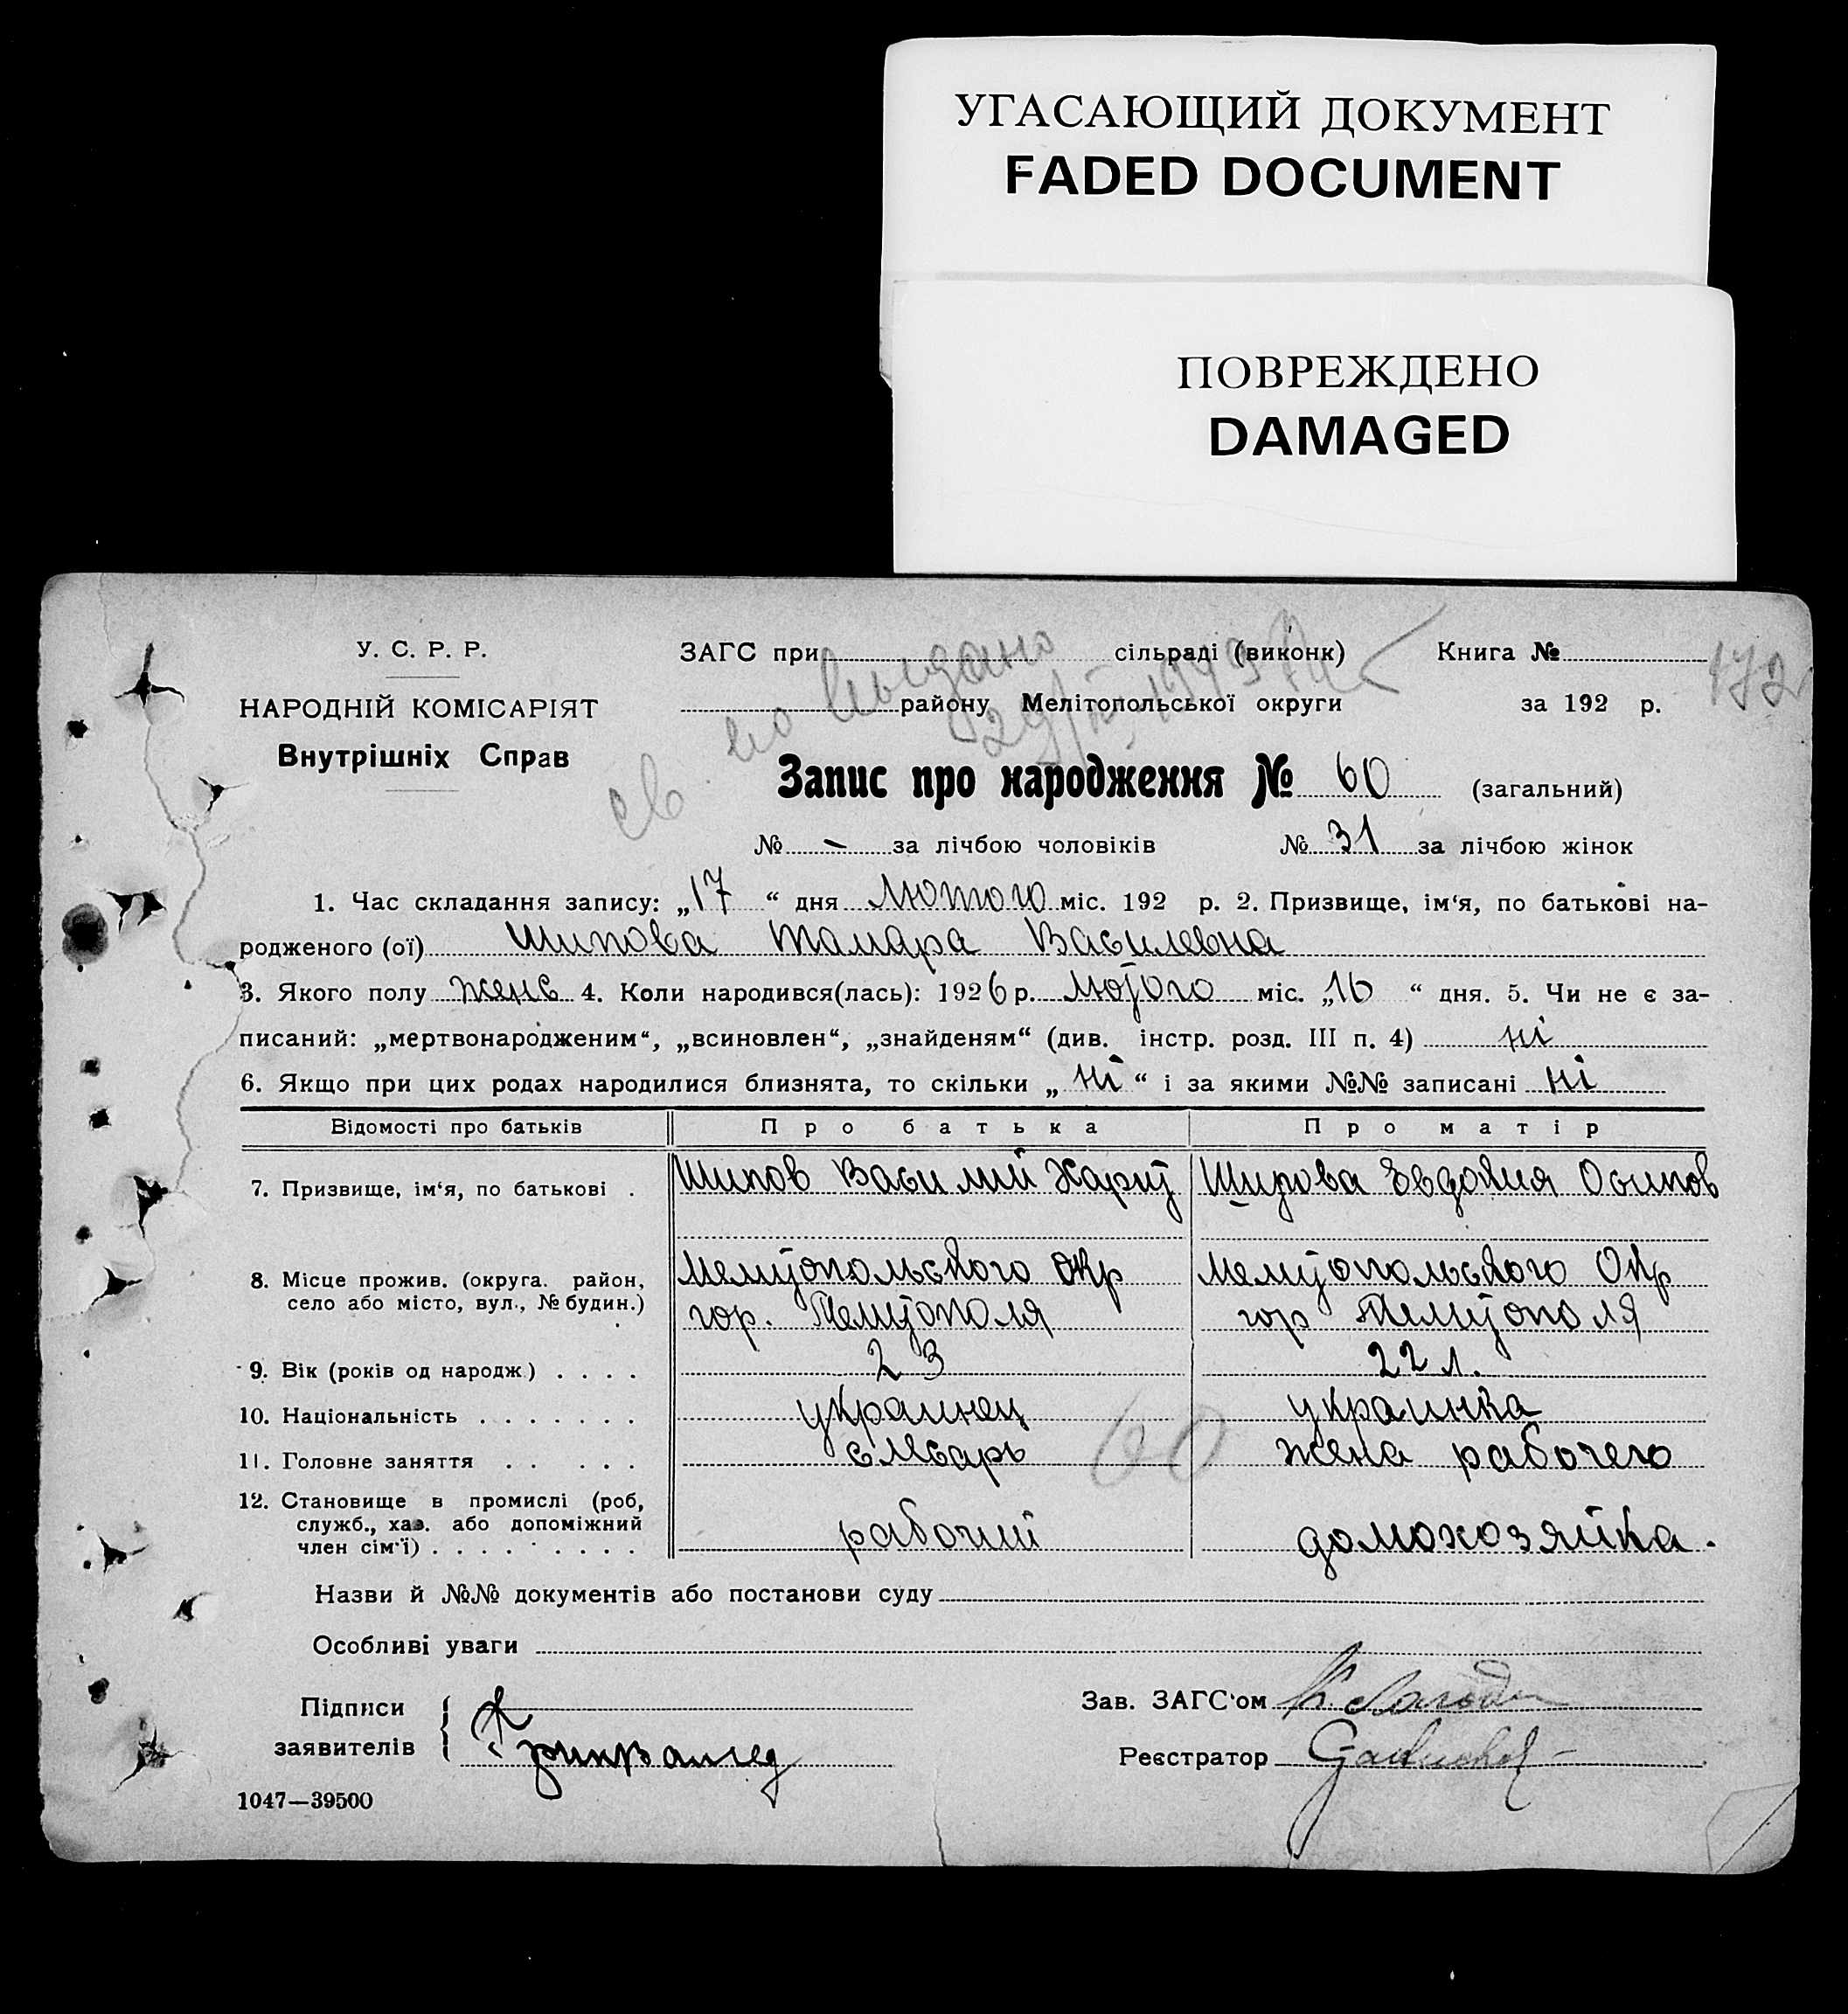 УГАСАЮЩИЙ ДОКУМЕНТ
FADED DOCUMENT
ПОВРЕЖДЕНО
DAMAGED
У. С. Р. Р.
НАРОДНІЙ КОМІСАРІЯТ
Внутрішніх Справ
ЗАГС при сільраді (виконк) Книга №
172
району Мелітопольської округи за 192 р.
св. во выдано
Запис про народження № 60 (загальний)
№ - за лічбою чоловіків № 31 за лічбою жінок
1. Час складання запису: „17“ дня Лютого міс. 192 р. 2. Призвище, ім‘я, по батькові на-
родженого (ої) Шипова Тамара Василевна
3. Якого полу женс 4. Коли народився(лась): 1926 р. Лютого міс. „16“ дня. 5. Чи не є за-
писаний: „мертвонародженим“, „всиновлен“, „знайденям“ (див. інстр. розд. III п. 4) ні
6. Якщо при цих родах народилися близнята, то скільки „ні“ і за якими №№ записані ні
Відомості про батьків Про батька Про матір
7. Призвище, ім‘я, по батькові . Шипов Василий Харит Шипова Евдокия Осипов
8. Місце прожив. (округа. район, село або місто, вул., № будин.) Мелитопольского Окр Мелитопольского Окр
гор. Мелитополя гор Мелитополя
9. Вік (років од народж.) . . . . 23 22 л.
10. Національність . . . . . . . украинец украинка
11. Головне заняття . . . . . слесарь жена рабочего
60
12. Становище в промислі (роб, служб., хаз. або допоміжний член сім‘ї) . . . . . . . . . рабочий домохозяйка.
Назви й №№ документів або постанови суду
Особливі уваги
Підписи заявителів
Зав. ЗАГС‘ом
Реєстратор
1047—39500